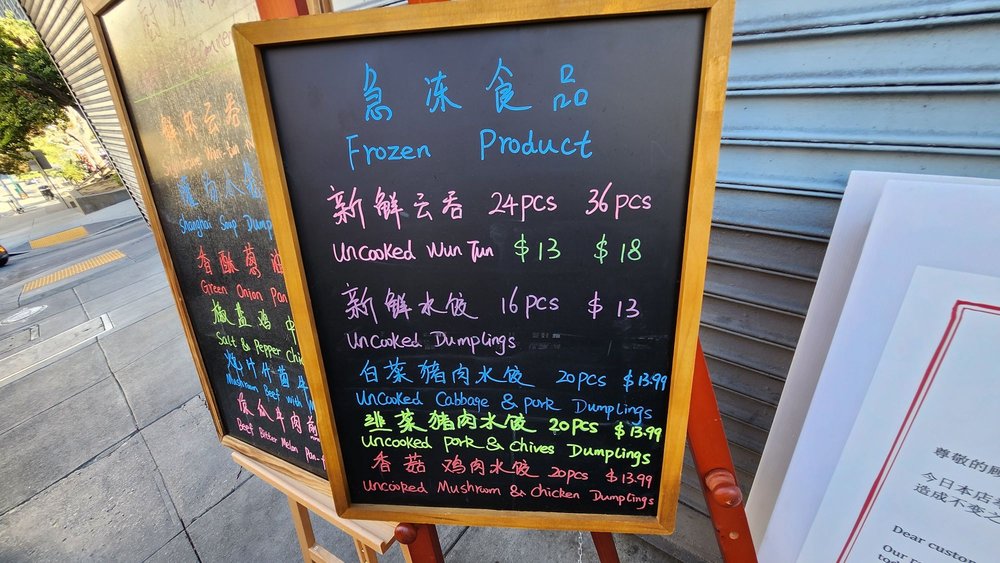 急冻食品
Frozen Product
新鲜云吞 24pcs 36pcs
Uncooked Wun Tun $13 $18
新鲜水饺 16pcs $13
Uncooked Dumplings
白菜猪肉水饺 20pcs $13.99
Uncooked Cabbage & pork Dumplings
韭菜猪肉水饺 20pcs $13.99
Uncooked pork & chives Dumplings
香菇鸡肉水饺 20pcs $13.99
Uncooked Mushroom & chicken Dumplings
云吞
Shanghai Soup Dump
香酥葱油
Green Onion Pan
椒盐鸡
Salt & Pepper Chi
Mushroom Beef with
瓜牛肉煎
Beef Bitter Melon Pan-f
尊敬的顾
今日本店
造成不变之
Dear custom
Our